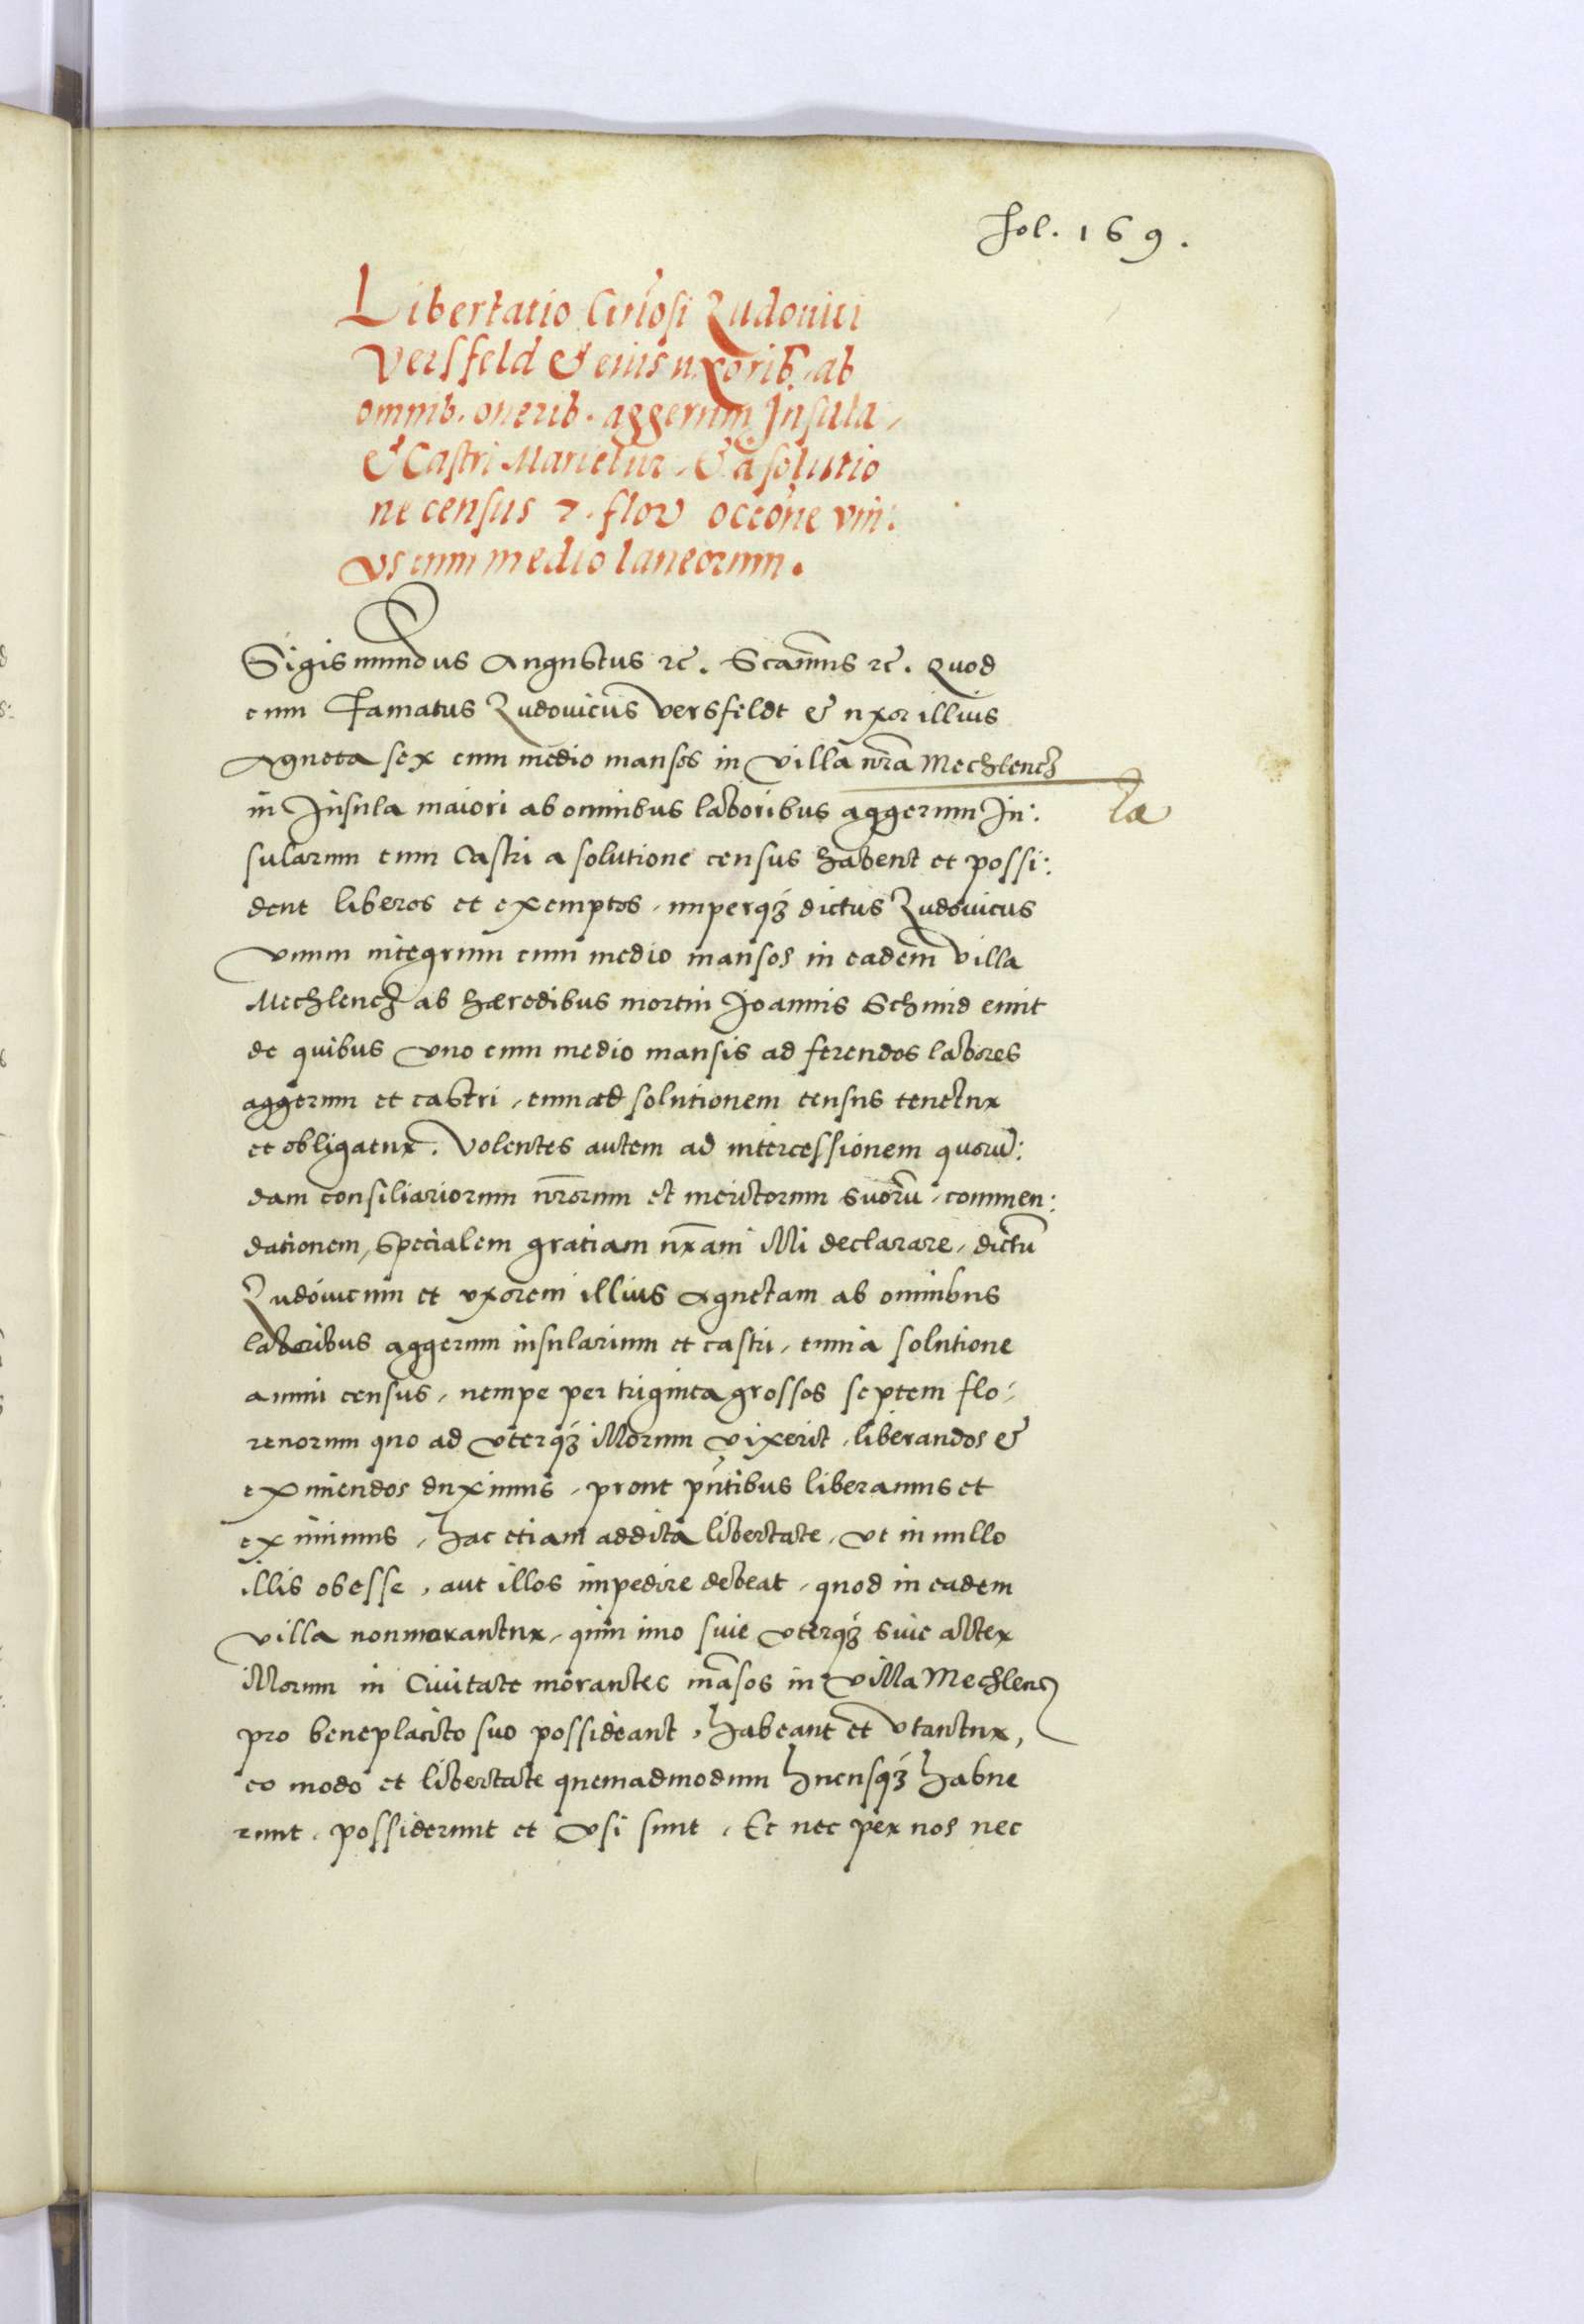 fol. 169.
Libertatio Ludouici
Versfeld & eius uxorib. ab
omnib. onerib. aggerum Insula,
& Castri Marieburg, & a solutio
ne census 7. flor occōne vni:
us cum medio laneorum.
Sigismundus Augustus ꝛc. Scām̄s ꝛc. Quod
cum Famatus Ludouicus Versfeldt & uxor illius
Agneta sex cum medio mansos in villa nr̄a Mechlencz
in Insula maiori ab omnibus laboribus aggerum In:
la
sularum cum Castri a solutione census habent et possi:
dent liberos et exemptos, nuperqȝ dictus Ludouicus
vnum integrum cum medio mansos in eadem villa
Mechlencz ab hæredibus mortui Joannis Schmid emit
de quibus vno cum medio mansis ad ferendos labores
aggerum et castri, cum ad solutionem census tenetur
et obligatur. Volentes autem ad intercessionem quorū:
dam consiliariorum nr̄orum et meritorum suorū, commen:
dationem, specialem gratiam nr̄am illi declarare, dictū
Ludouicum et vxorem illius Agnetam ab omnibus
laboribus aggerum insularum et castri, cum a solutione
annui census, nempe per triginta grossos septem flo:
renorum quo ad vterqȝ illorum vixerit, liberandos &
eximendos duximus, prout pn̄tibus liberamus et
eximimus, hac etiam addita libertate, vt in nullo
illis obesse, aut illos impedire debeat, quod in eadem
villa non morantur, quin imo siue vterqȝ siue alter
illorum in Ciuitate morantes mā̄sos in villa Mechlencz
pro beneplacito suo possideant, habeant et vtantur,
eo modo et libertate quemadmodum hucusqȝ habue
runt, possiderunt et vsi sunt, Et nec per nos nec